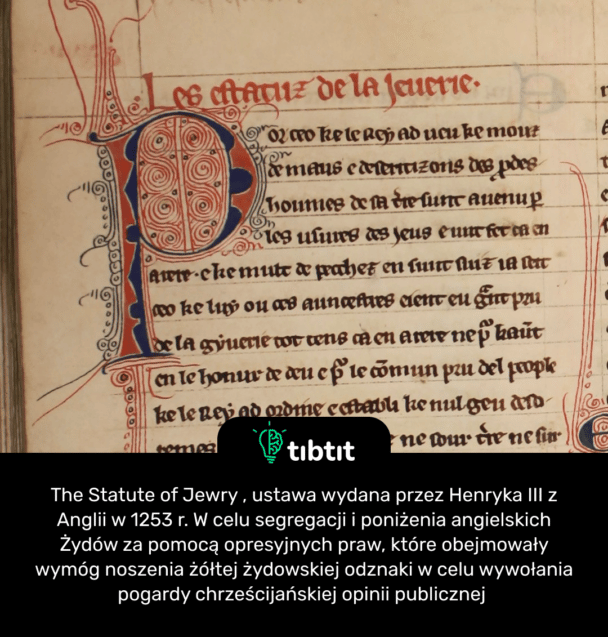 Les estatuz de la Jeuerie.
Por ceo ke le Rey ad ueu ke mout
de maus e desentizons des pdes
houmes de sa tre sunt auenu p
les usures des Jeus e unt fet ca en
arere. e ke mult de pecchez en sunt siuz ia seit
ceo ke luy ou ces auncestres eient eu gnt pru
de la gyuerie tot tens ca en arere ne p kaunt
en le honur de deu e p le comun pru del people
ke le Rey ad ordine e establi ke nul geu
ne sour tre ne sur
tibtit
The Statute of Jewry , ustawa wydana przez Henryka III z
Anglii w 1253 r. W celu segregacji i poniżenia angielskich
Żydów za pomocą opresyjnych praw, które obejmowały
wymóg noszenia żółtej żydowskiej odznaki w celu wywołania
pogardy chrześcijańskiej opinii publicznej